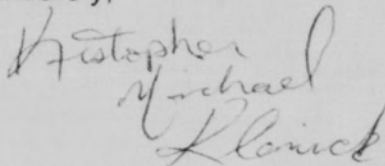 Kristopher
Michael
Klanick